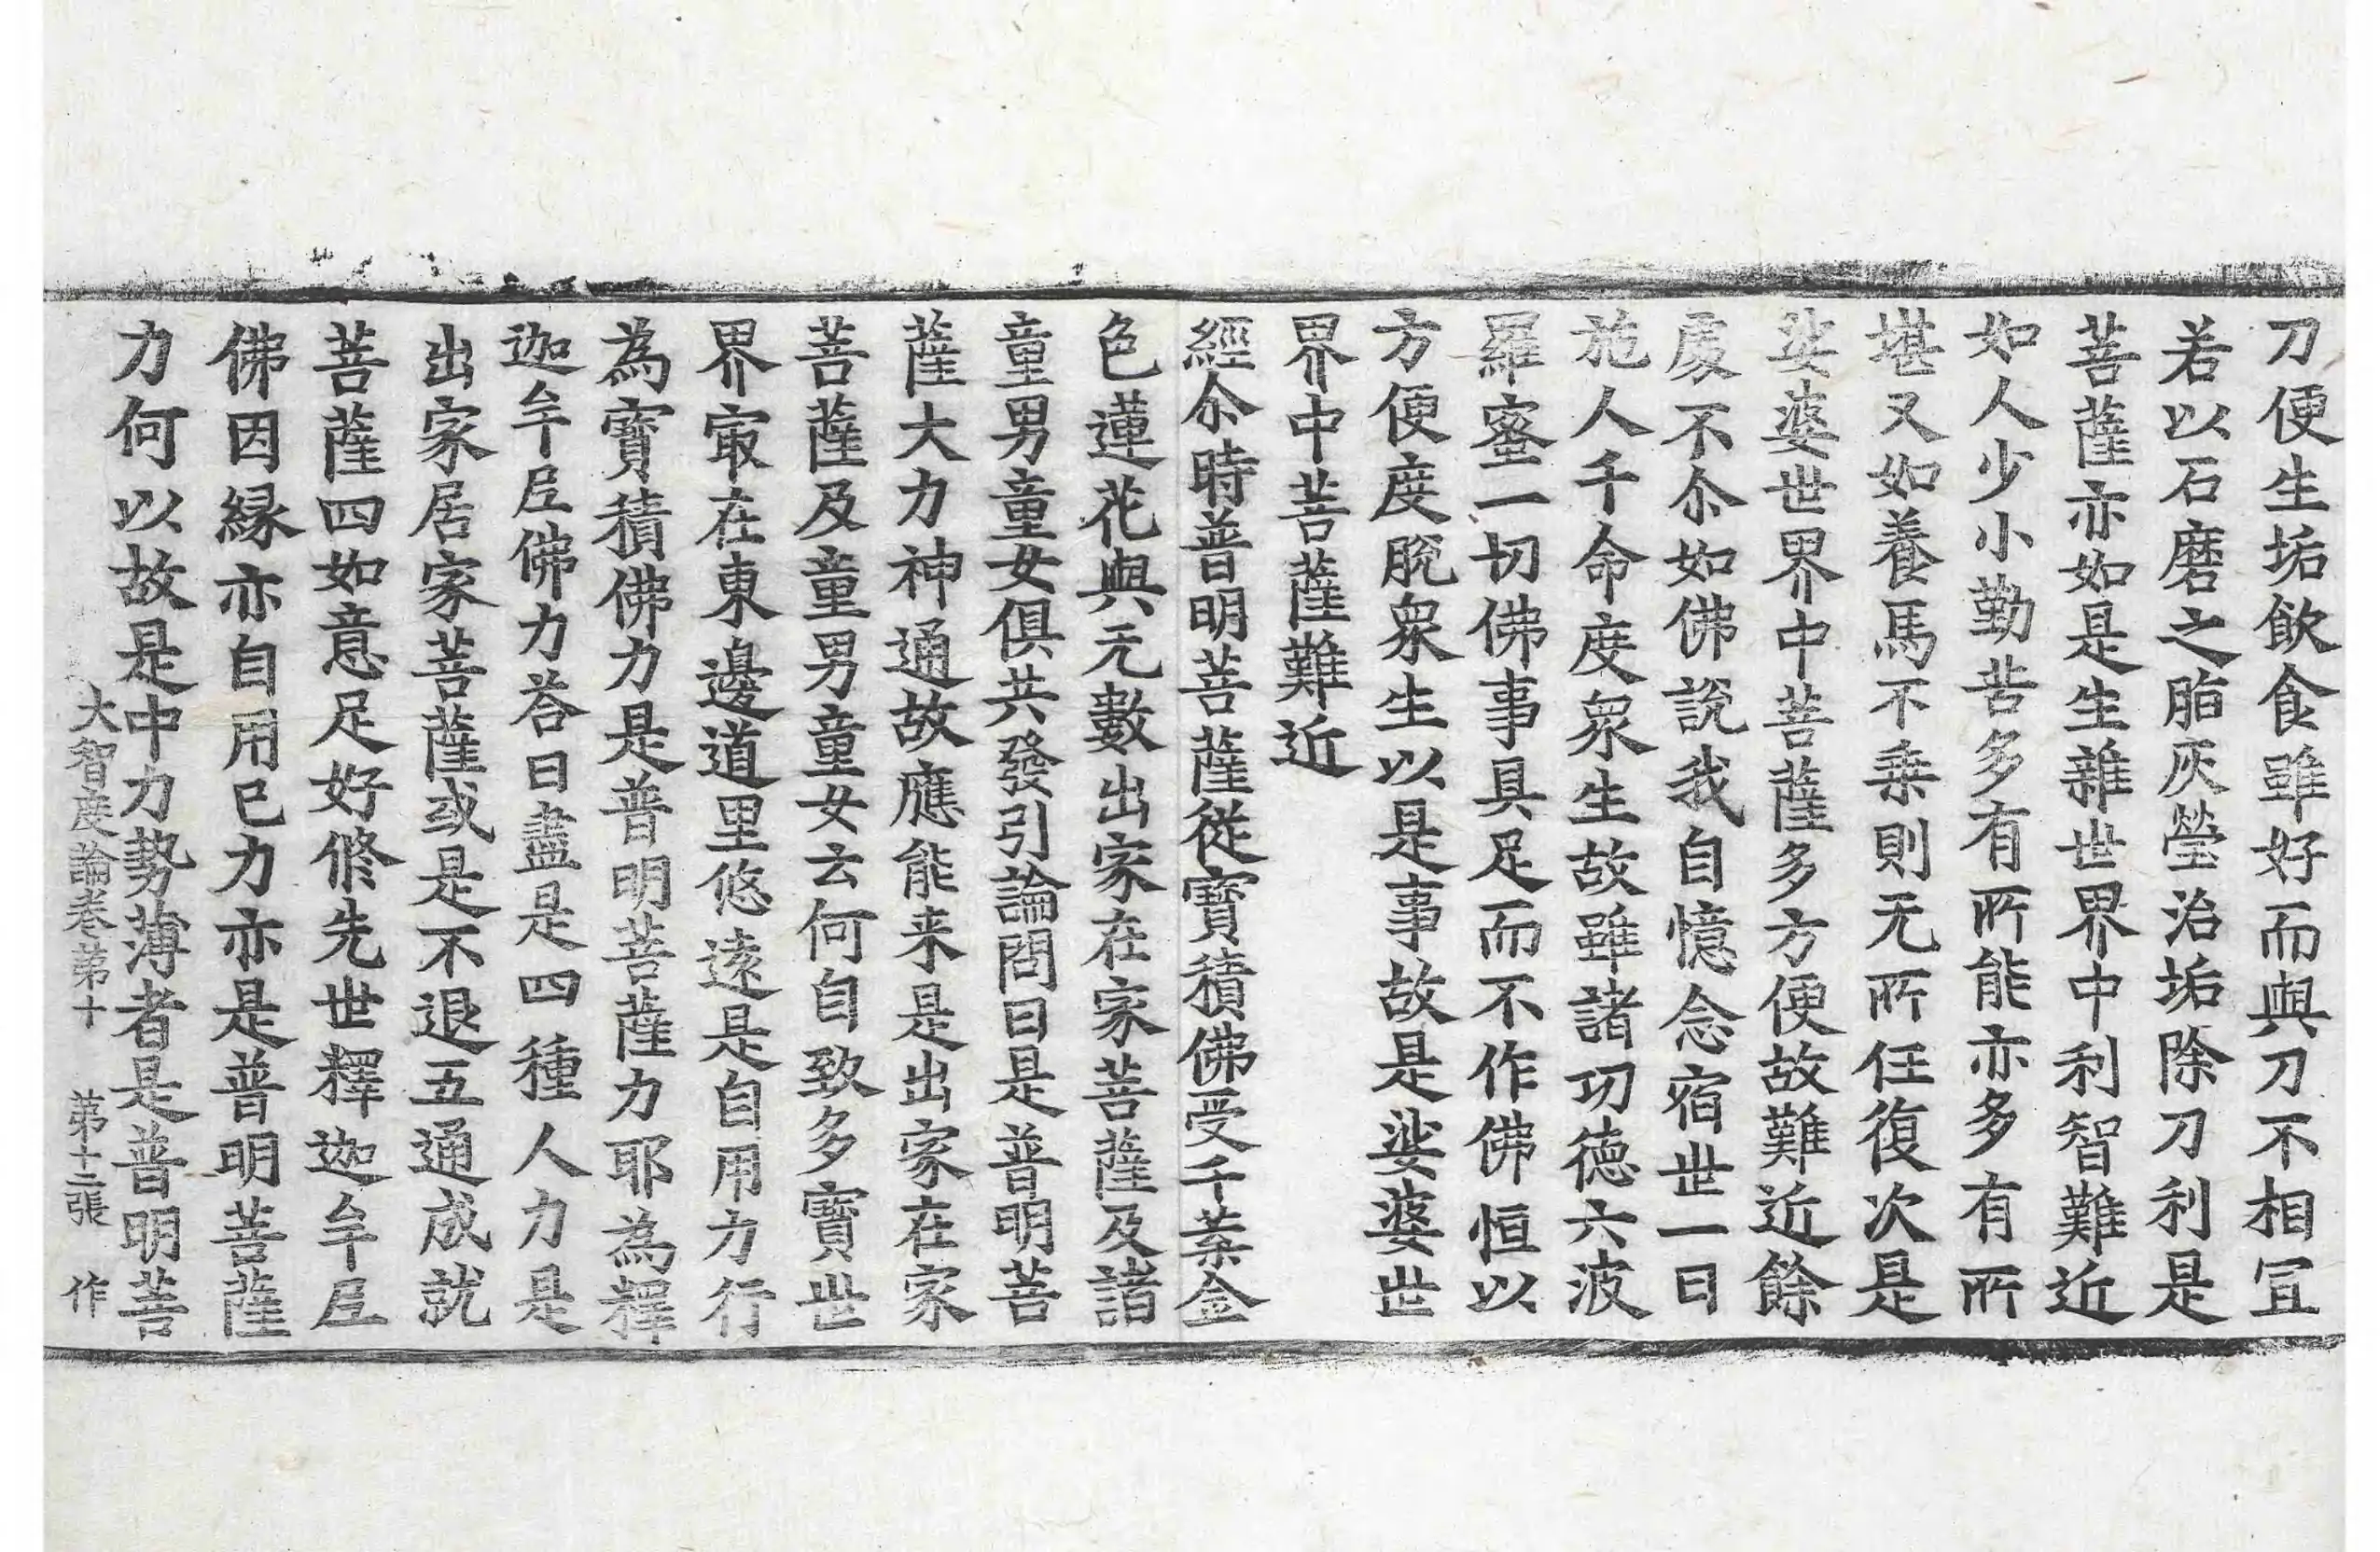 刀便生垢飲食雖好而與刀不相冝
若以石磨之脂灰瑩治垢除刀利是
菩薩亦如是生雜世界中利智難近
如人少小勤苦多有所能亦多有所
堪又如養馬不乗則无所任復次是
娑婆世界中菩薩多方便故難近餘
處不尒如佛說我自憶念宿世一日
施人千命度衆生故雖諸功德六波
羅蜜一切佛事具足而不作佛恒以
方便度脫衆生以是事故是娑婆世
界中菩薩難近
經尒時普明菩薩從寶積佛受千葉金
色蓮花與无數出家在家菩薩及諸
童男童女俱共發引論問曰是普明菩
薩大力神通故應能来是出家在家
菩薩及童男童女云何自致多寶世
界㝡在東邊道里悠遠是自用力行
為寶積佛力是普明菩薩力耶為釋
迦牟尼佛力荅曰盡是四種人力是
出家居家菩薩或是不退五通成就
菩薩四如意足好修先世釋迦牟尼
佛因緣亦自用已力亦是普明菩薩
力何以故是中力勢薄者是普明菩
大智度論卷第十 第十二張 作